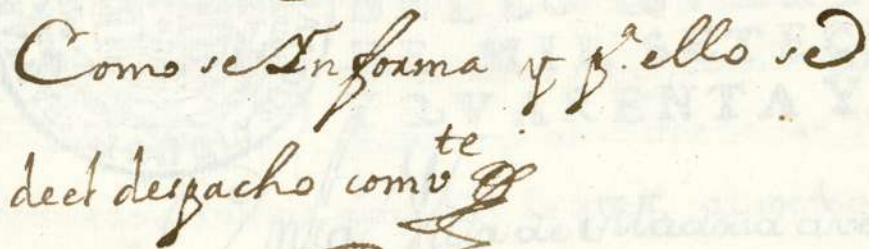 Como se Informa y p.ª ello se
de el despacho comv.te